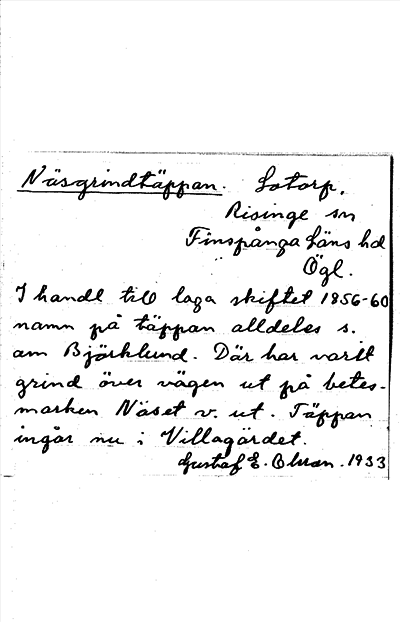 Näsgrindtäppan. Lotorp.
Risinge sn
Finspånga läns hd
Ögl.
I handl till laga skiftet 1856-60
namn på täppan alldeles s.
om Björklund. Där har varit
grind över vägen ut på betes-
marken Näset v. ut. Täppan
ingår nu i Villagärdet.
Gustaf E. Olsson. 1933